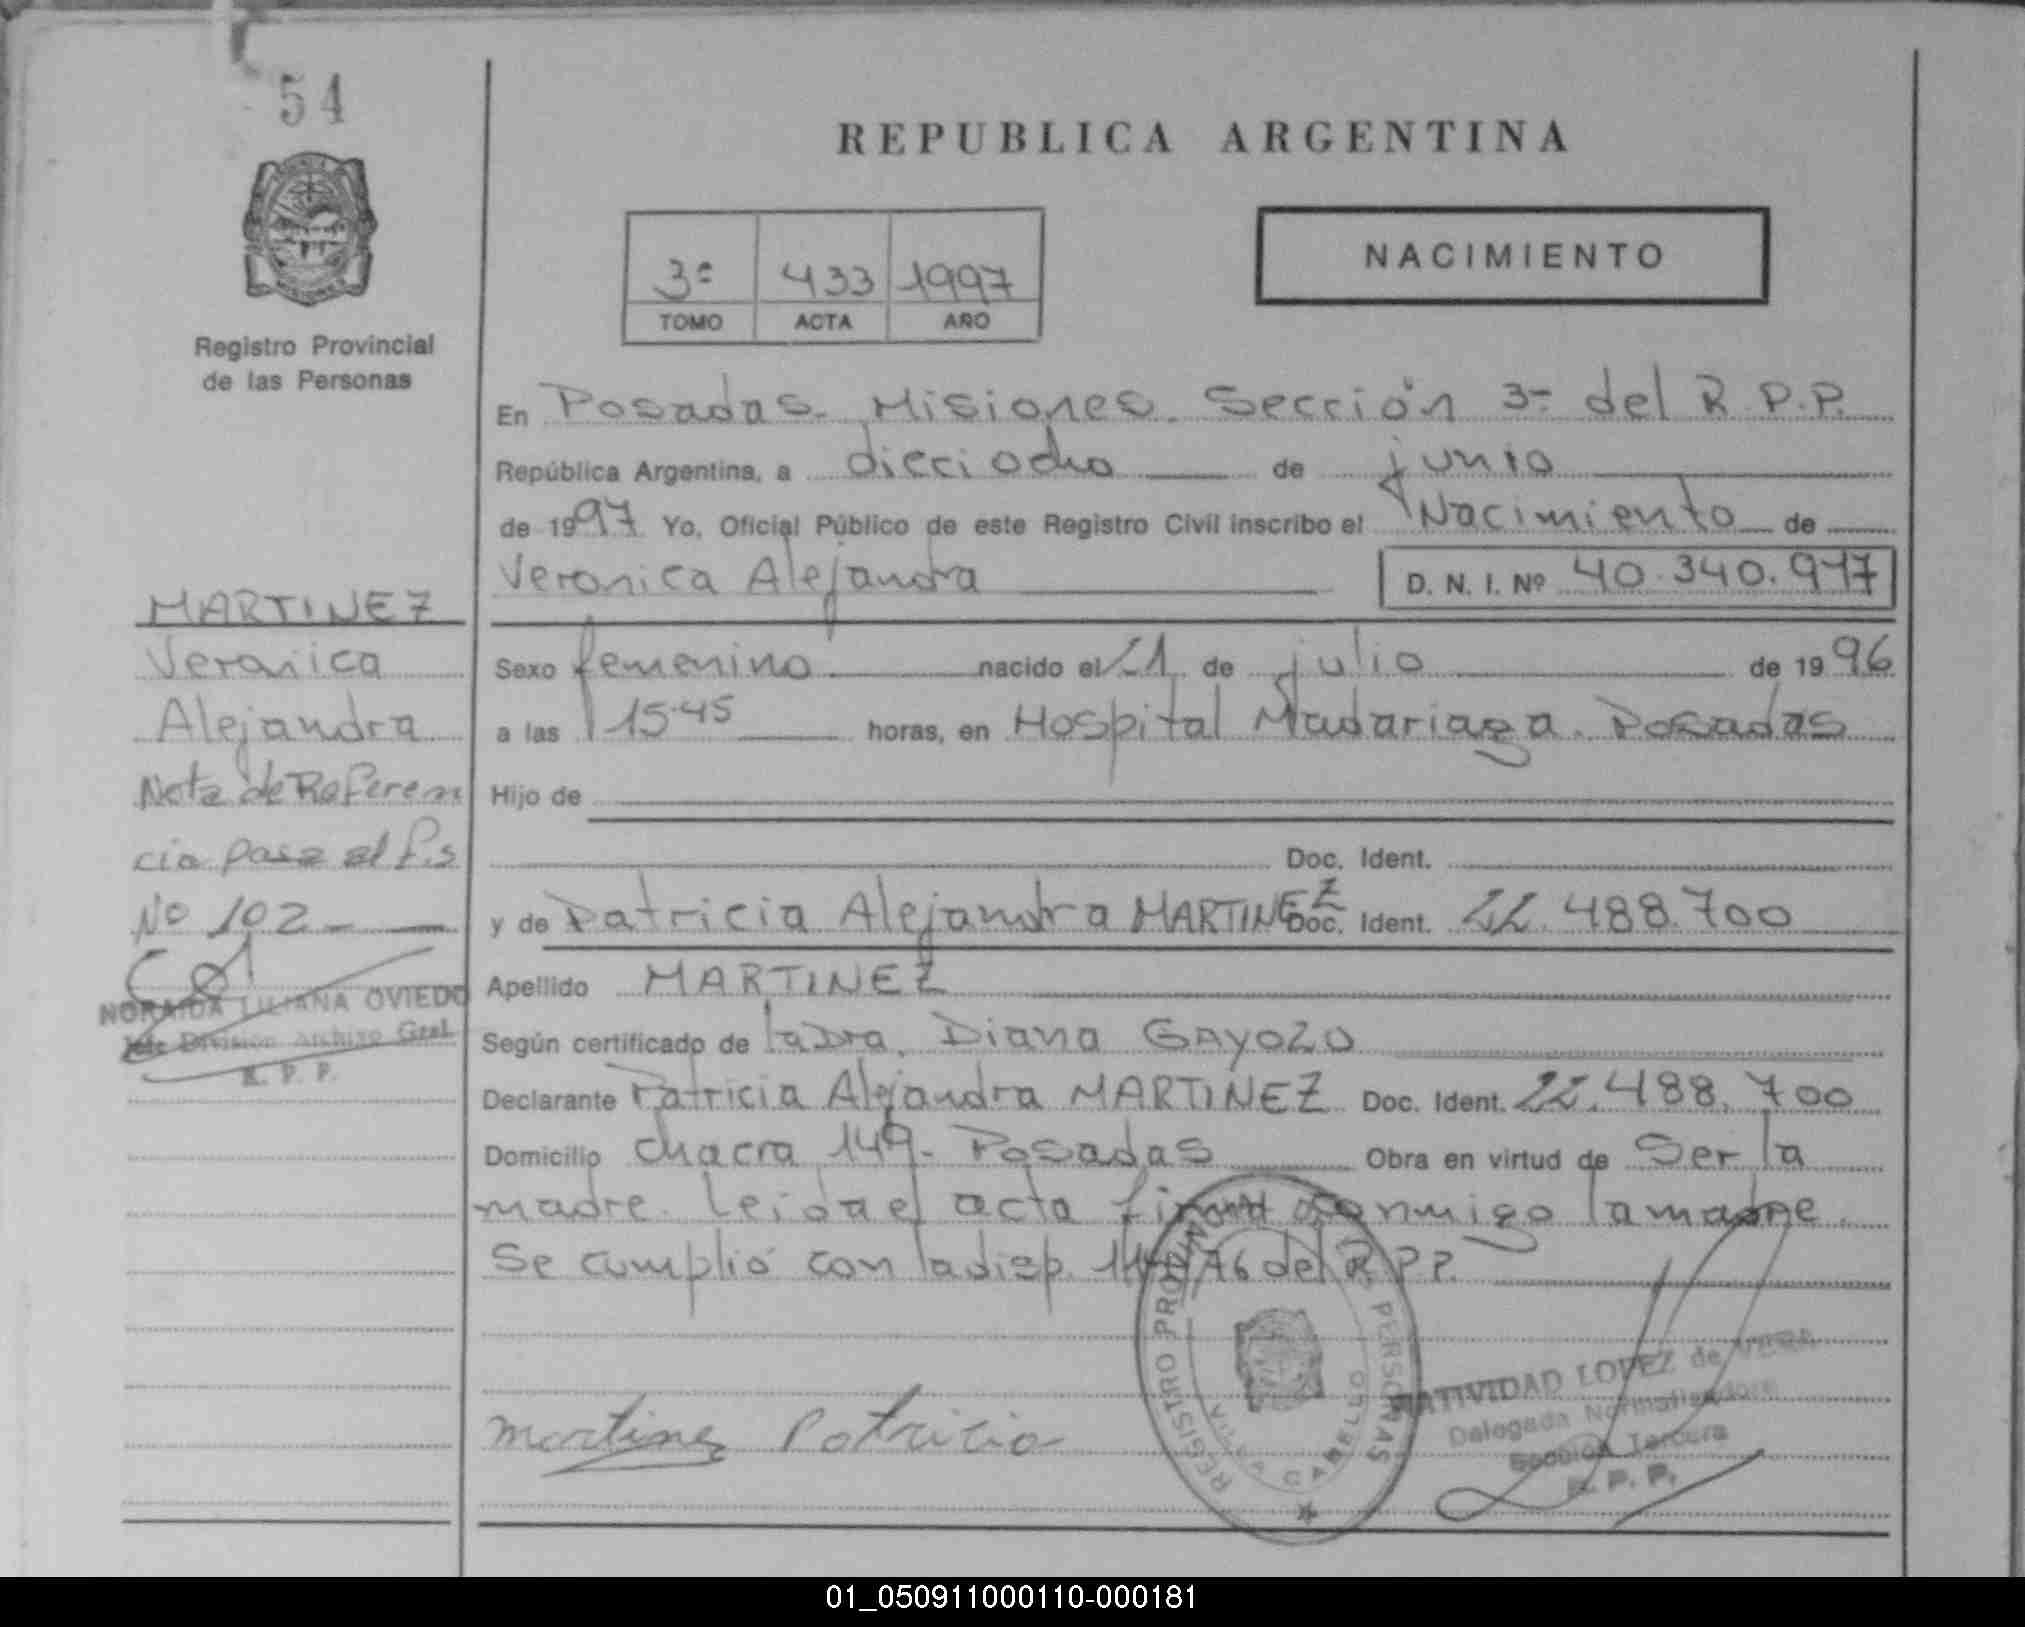 54
REPUBLICA ARGENTINA
3ª 433 1997
TOMO ACTA AÑO
NACIMIENTO
Registro Provincial
de las Personas
En Posadas. Misiones. Sección 3ª del R.P.P.
República Argentina, a dieciocho de junio
de 1997 Yo, Oficial Público de este Registro Civil inscribo el Nacimiento de
Veronica Alejandra D. N. I. Nº 40.340.917
MARTINEZ
Veronica
Alejandra
Nota de Referen
cia pasa al f.s
Nº 102
NORAIDA LILIANA OVIEDO
Jefe División Archivo Gral
R. P. P.
Sexo femenino nacido el 21 de julio de 1996
a las 15.45 horas, en Hospital Madariaga. Posadas
Hijo de
Doc. Ident.
y de Patricia Alejandra MARTINEZ Doc. Ident. 22.488.700
Apellido MARTINEZ
Según certificado de la Dra. Diana GAYOZO
Declarante Patricia Alejandra MARTINEZ Doc. Ident. 22.488.700
Domicilio chacra 149- Posadas Obra en virtud de Ser la
madre. leida el acta firma conmigo la madre.
Se cumplió con la disp. 76 del R.P.P.
martinez Patricia
REGISTRO PROVINCIAL PERSONAS
VILLA CABELLO
NATIVIDAD LOPEZ de
Delegada Normalizadora
Sección Tercera
R. P. P.
01_050911000110-000181